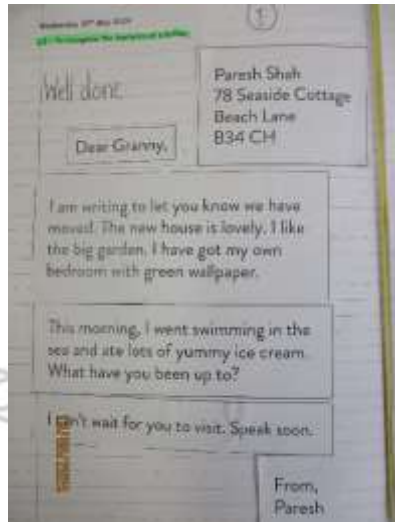 1
Well done
Paresh Shah
78 Seaside Cottage
Beach Lane
B34 CH
Dear Granny,
I am writing to let you know we have
moved. The new house is lovely. I like
the big garden. I have got my own
bedroom with green wallpaper.
This morning, I went swimming in the
sea and ate lots of yummy ice cream.
What have you been up to?
I can't wait for you to visit. Speak soon.
From,
Paresh